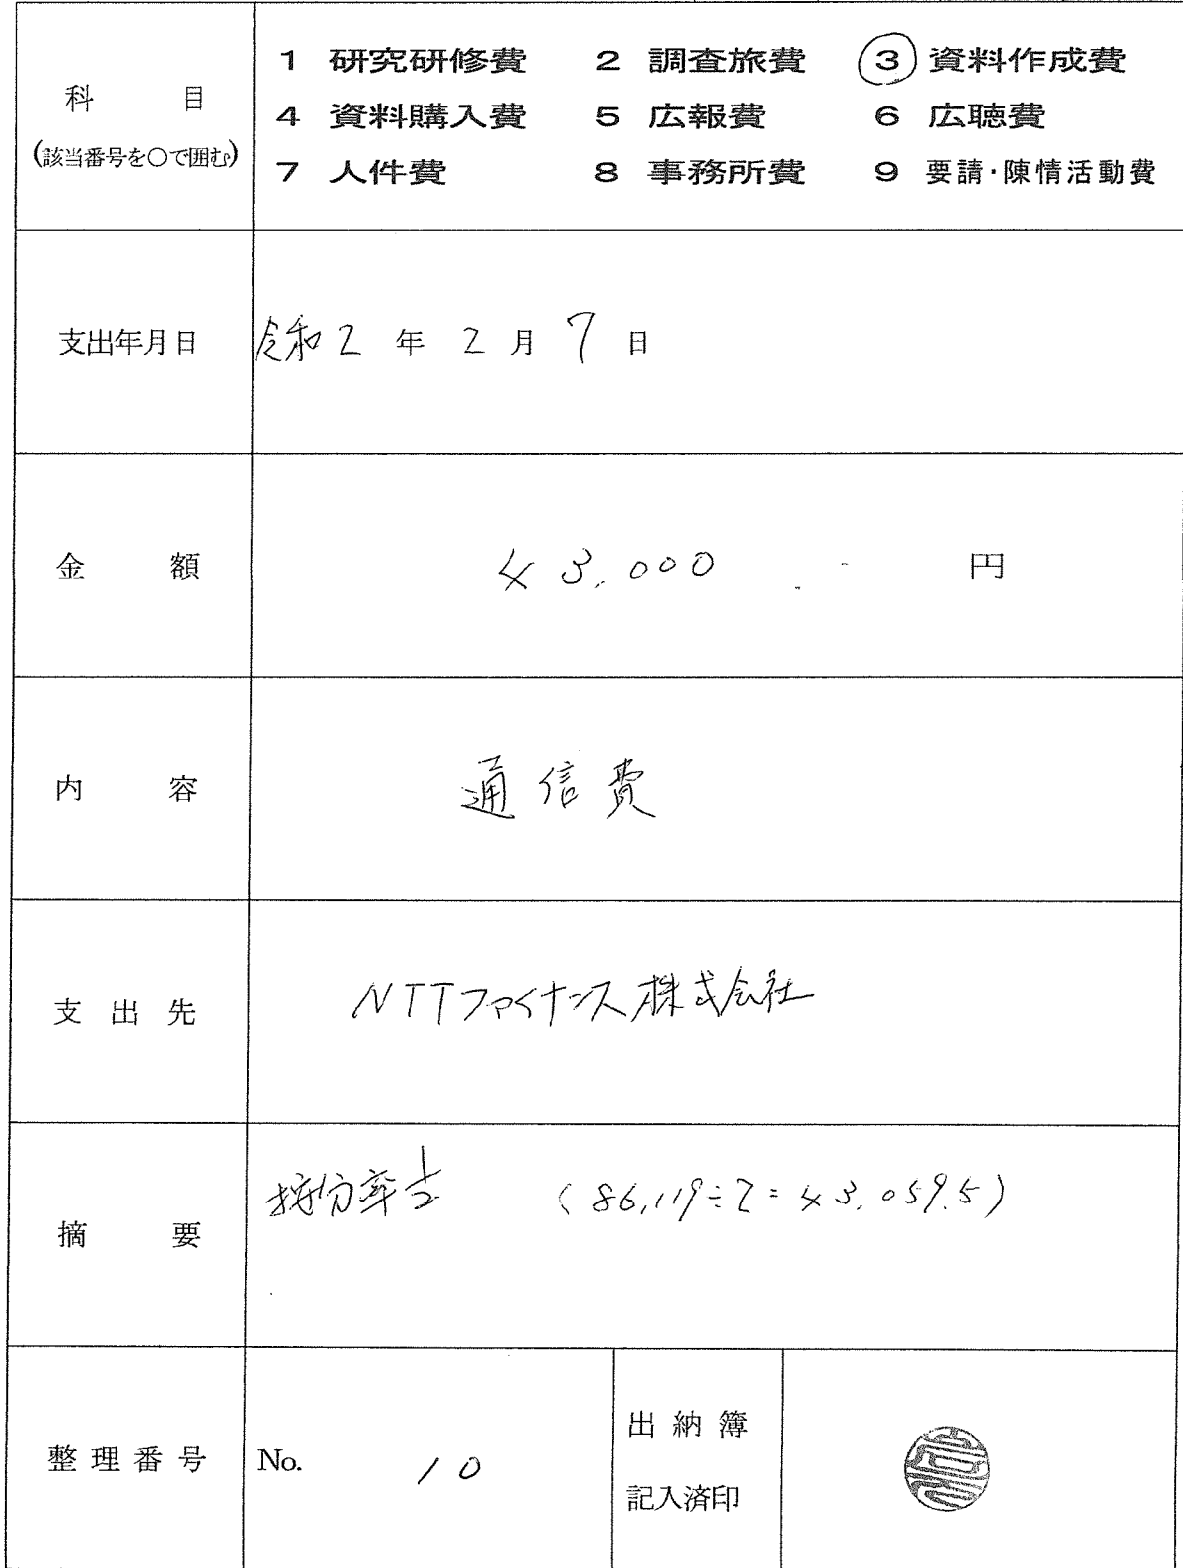 科 目
(該当番号を○で囲む)
1 研究研修費 2 調査旅費 3 資料作成費
4 資料購入費 5 広報費 6 広聴費
7 人件費 8 事務所費 9 要請・陳情活動費
支出年月日 令和2年2月7日
金 額 43,000 円
内 容 通信費
支 出 先 NTTファイナンス株式会社
摘 要 按分率1/2 (86,119÷2=43,059.5)
整理番号 No. 10
出納簿
記入済印